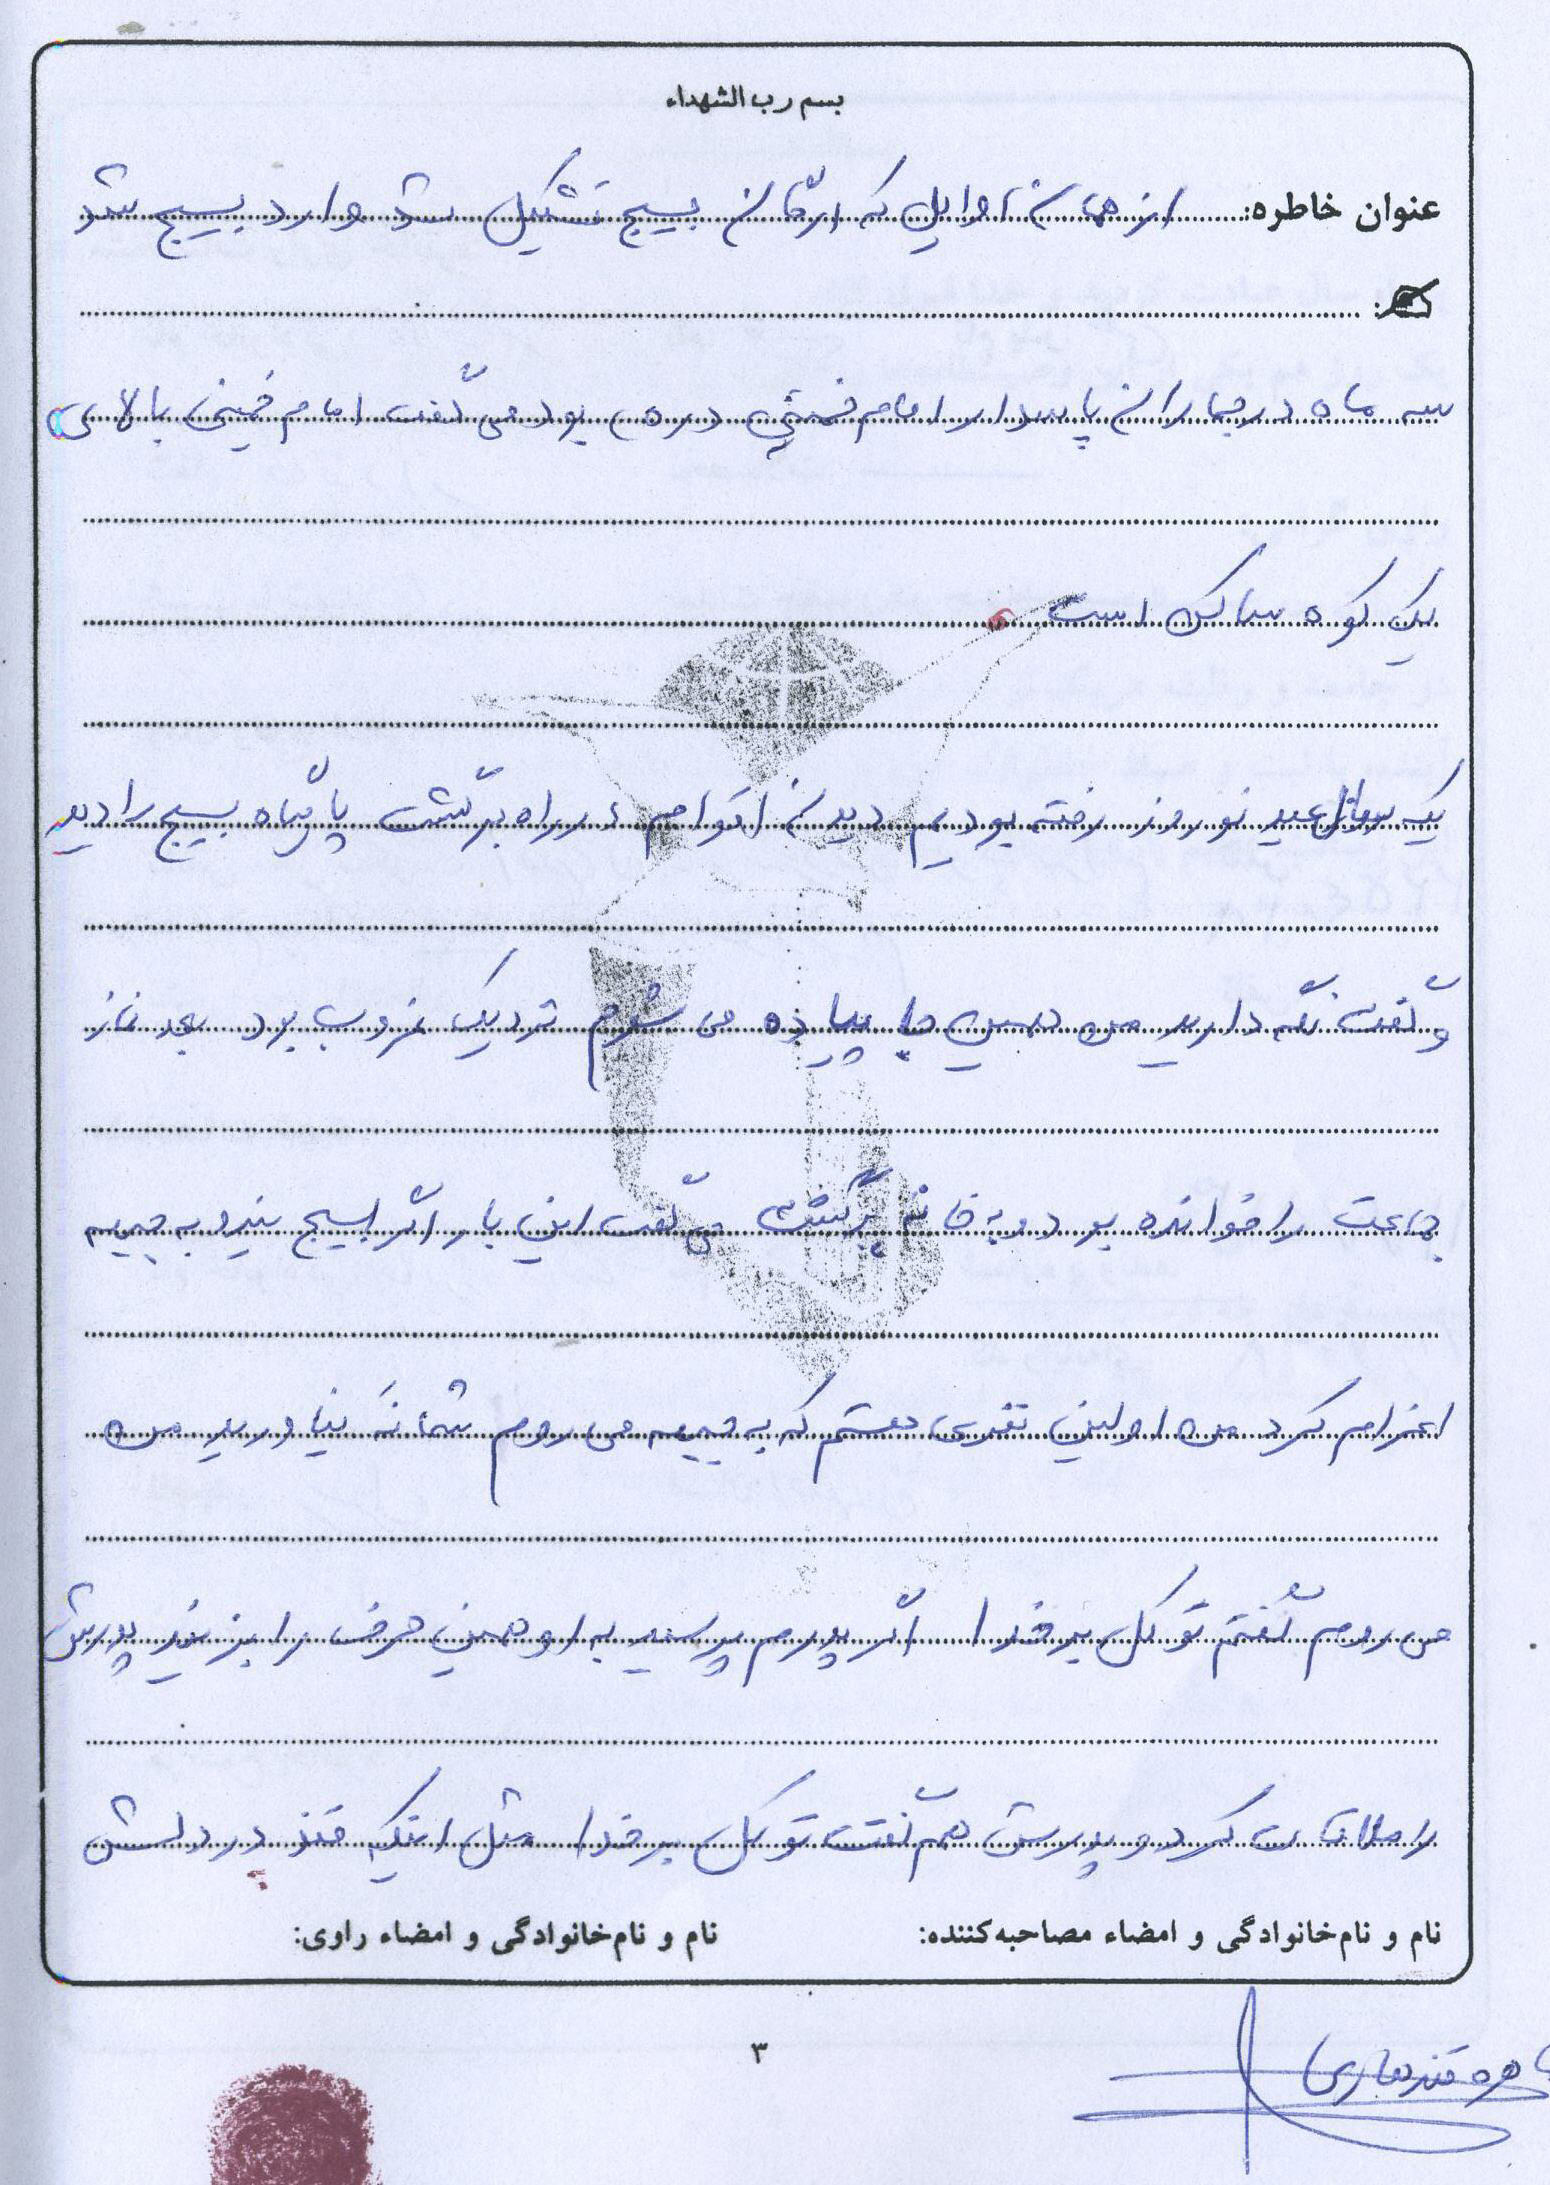 بسم رب الشهداء
عنوان خاطره: از همان اوایل که ارگان بسیج تشکیل شد وارد بسیج شد
سه ماه در جماران پاسدار امام خمینی (ره) بود می گفت امام خمینی بالای
یک کوه ساکن است
یک سال عید نوروز رفته بودیم دیدن اقوام در راه برگشت پایگاه بسیج را دید
و گفت نگه دارید من همین جا پیاده می شوم نزدیک غروب بود بعد نماز
جماعت را خوانده بود و به خانه برگشت می گفت این بار اگر بسیج نیرو به جبهه
اعزام کرد من اولین نفری هستم که به جبهه می روم شما نَه نیاورید من
می روم گفتم توکل بر خدا اگر پدرم پرسید به او همین حرف را بزنید پدرش
را ملاقات کرد و پدرش هم گفت توکل بر خدا مثل اینکه قند در دلش
نام و نام خانوادگی و امضاء مصاحبه کننده: نام و نام خانوادگی و امضاء راوی:
۳
قندهاری